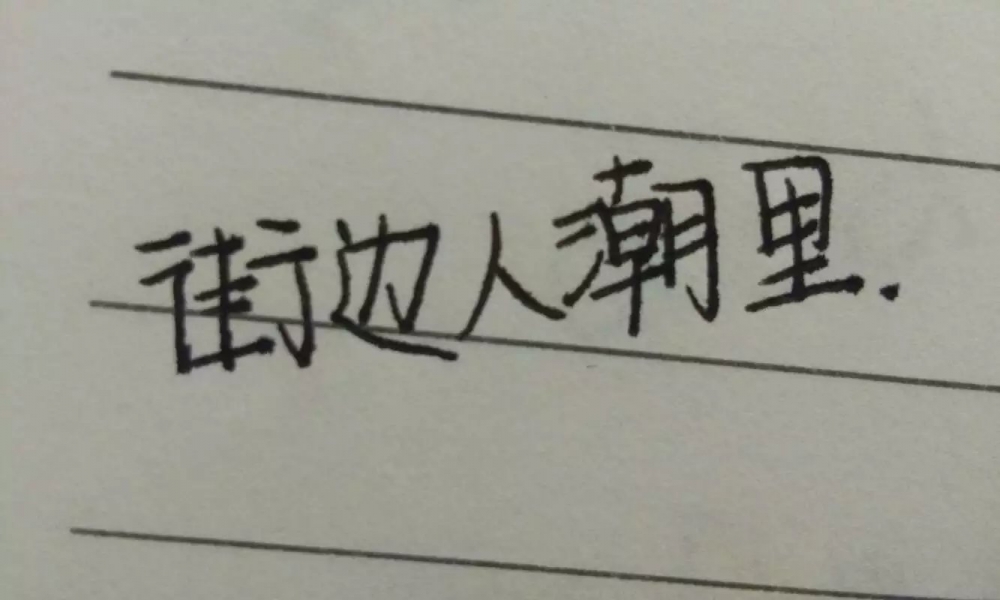 街边人潮里.